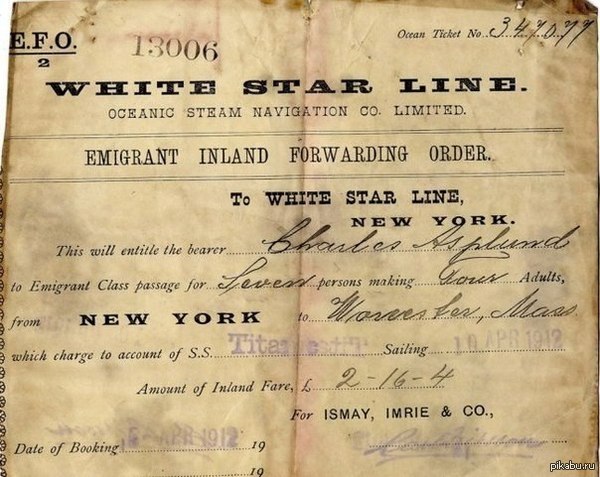 E.F.O.
2
13006
Ocean Ticket No 347077
WHITE STAR LINE.
OCEANIC STEAM NAVIGATION CO. LIMITED.
EMIGRANT INLAND FORWARDING ORDER.
To WHITE STAR LINE,
NEW YORK.
This will entitle the bearer Charles Asplund
to Emigrant Class passage for Seven persons making Four Adults,
from NEW YORK to Worcester, Mass
which charge to account of S.S. Sailing 10 APR 1912
Amount of Inland Fare, £ 2-16-4
For ISMAY, IMRIE & CO.,
Date of Booking 1912 19
19
pikabu.ru